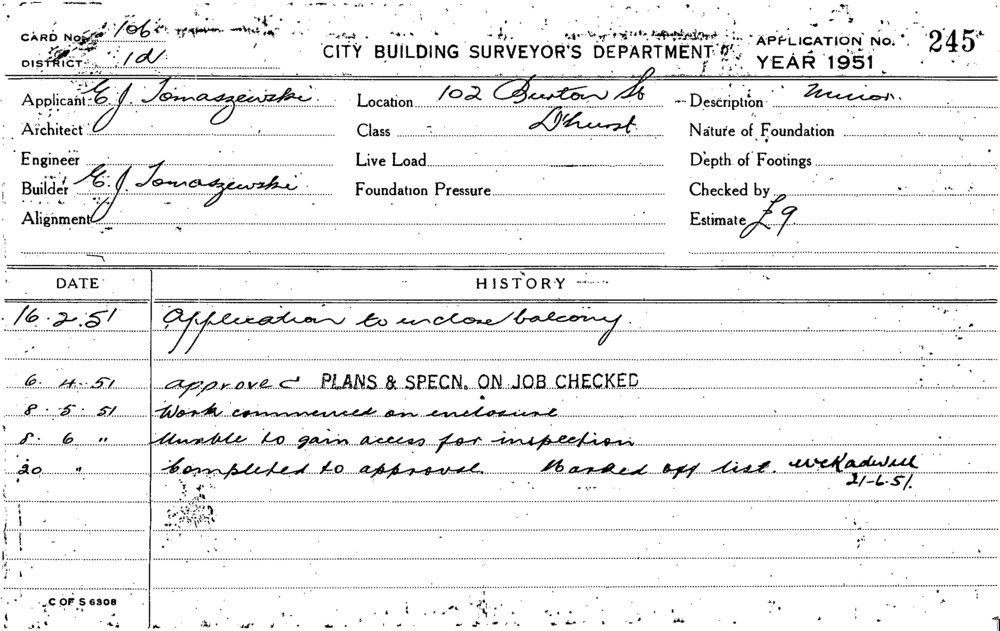 CARD No. 106
DISTRICT 1d
CITY BUILDING SURVEYOR'S DEPARTMENT
APPLICATION No. 245
YEAR 1951
Applicant E. J. Tomaszewski Location 102 Burton St Description Minor.
Architect Class D'hurst Nature of Foundation
Engineer Live Load Depth of Footings
Builder E. J. Tomaszewski Foundation Pressure Checked by
Alignment Estimate £9
DATE HISTORY
16.2.51 Application to enclose balcony.
6.4.51 approved PLANS & SPECN. ON JOB CHECKED
8.5.51 Work commenced on enclosure
8.6 " Unable to gain access for inspection
20 " Completed to approval. Marked off list.
21-6-51.
C OF S 6308